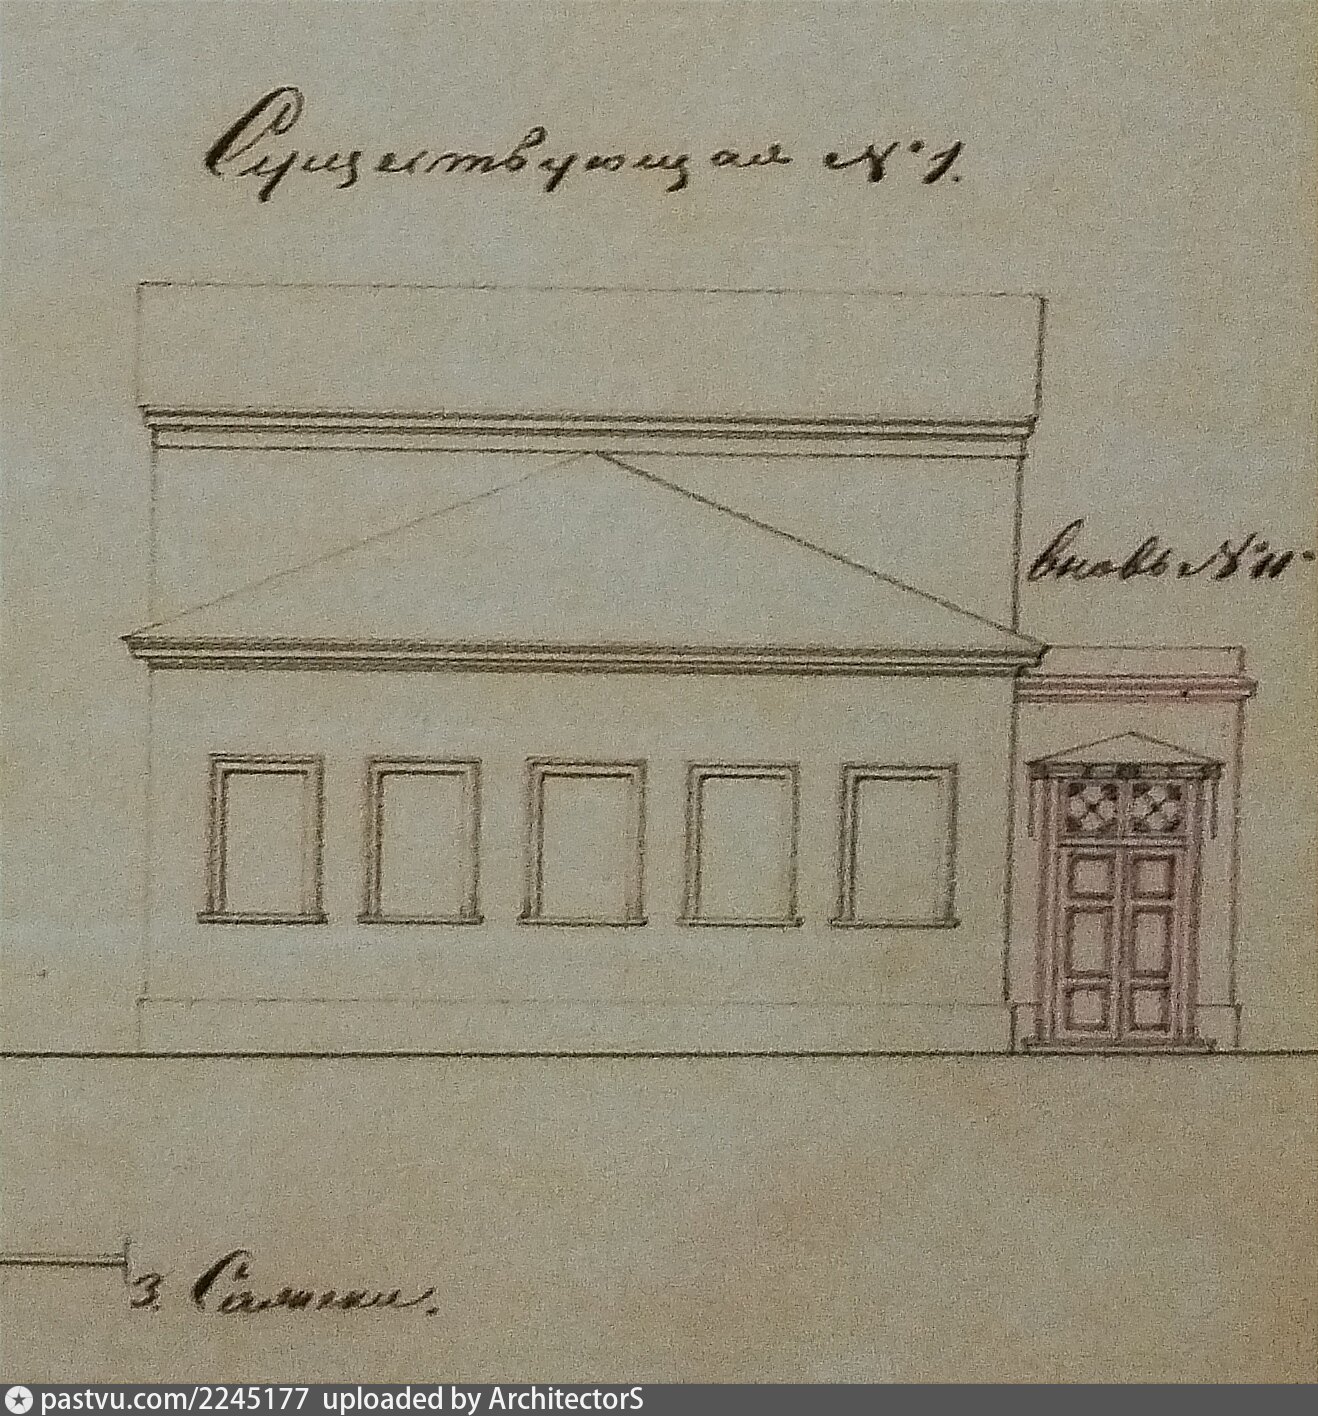 Существующая № 1.
вновь № 11
3. Сажени.
pastvu.com/2245177 uploaded by ArchitectorS